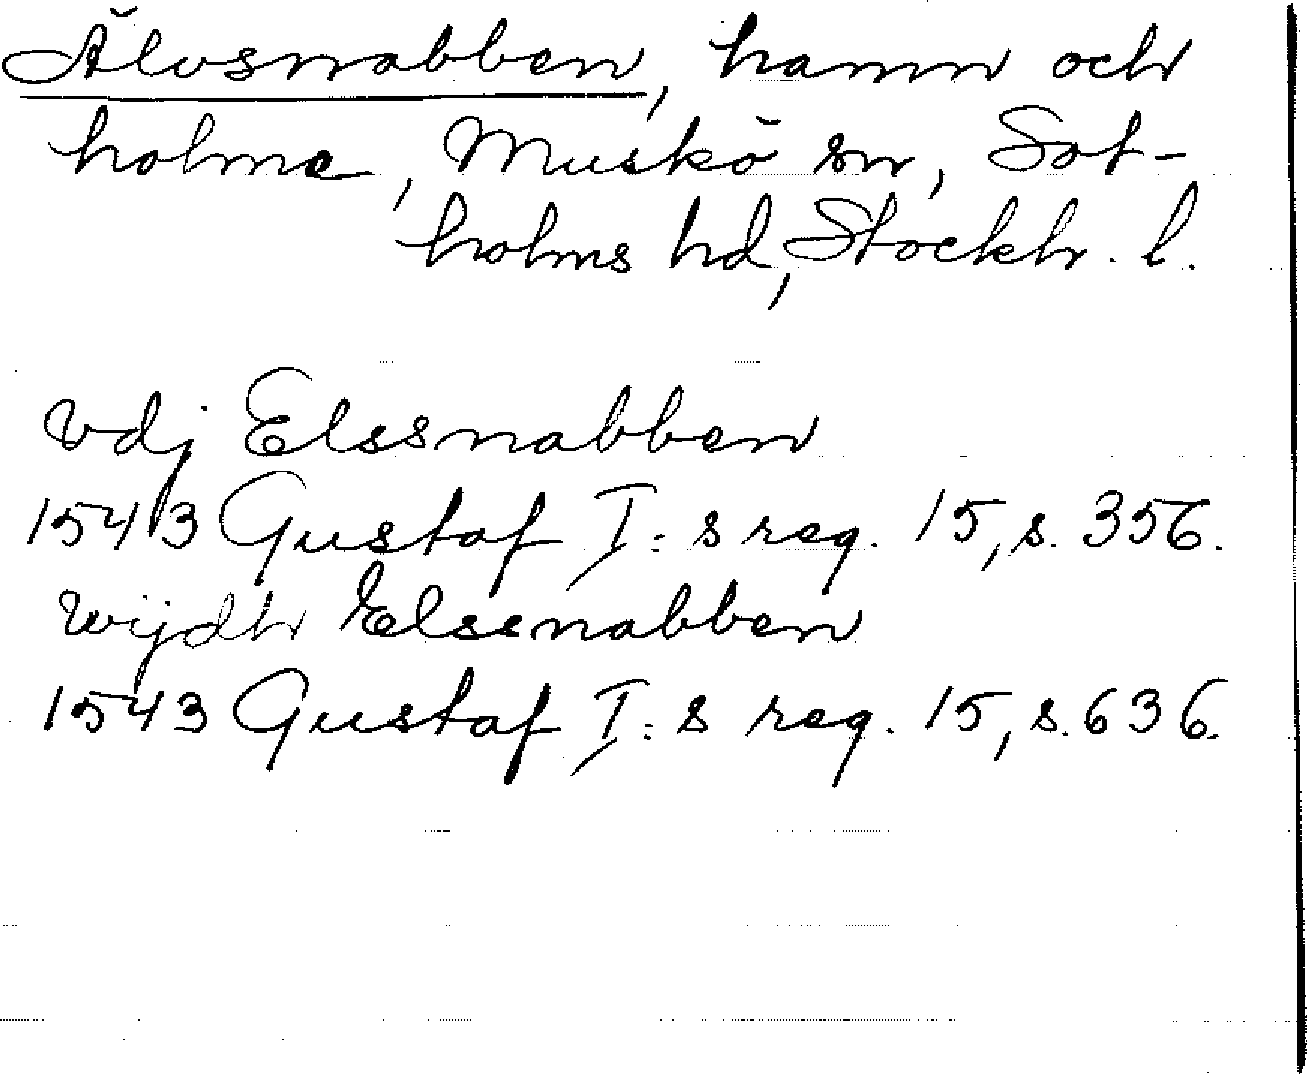 Älvsnabben, hamn och
holme, Muskö sn, Sot-
holms hd, Stockh. l.
vdj Elssnabben
1543 Gustaf I:s reg. 15, s. 356.
wijdh Elssnabben
1543 Gustaf I:s reg. 15, s. 636.